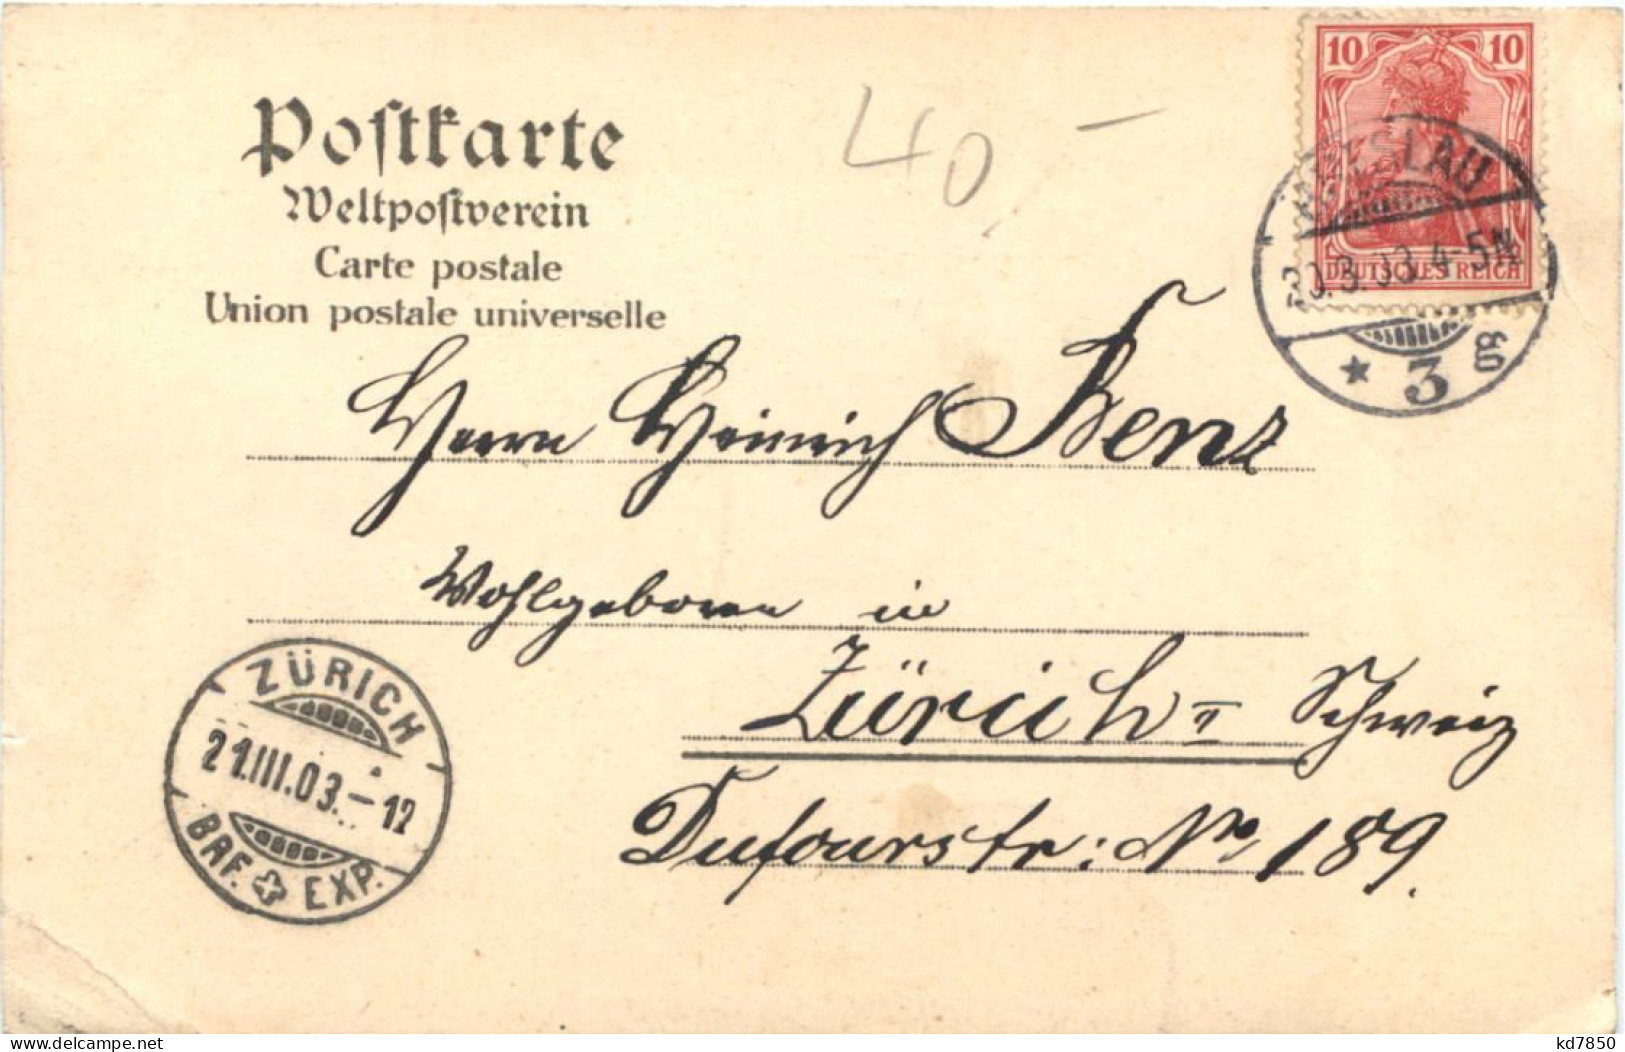 Postkarte
Weltpostverein
Carte postale
Union postale universelle
40,-
10 10
DEUTSCHES REICH
BRESLAU
20.3.03.4-5N
* 3 g
Herrn Heinrich Benz
Wohlgeboren in
Zürich II Schweiz
Dufourstr: No 189.
ZÜRICH
21.III.03.-12
BRF. EXP.
kd7850